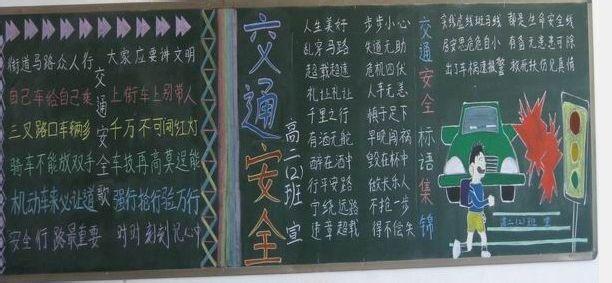 街道马路众人行 大家应要讲文明
自己车给自己乘 上街车上别带人
三叉路口车辆多 千万不可闯红灯
骑车不能放双手 车技再高莫逞能
机动车来必让道 强行抢行险万行
安全行路最重要 时时刻刻记心中
交通安全歌
交通安全
高二(2)班 宣
人生美好 步步小心
乱穿马路 失道无助
超载超速 危机四伏
礼让礼让 人车无恙
千里之行 慎于足下
有酒无舵 早晚闯祸
醉在酒中 毁在杯中
行平安路 做长乐人
宁绕远路 不抢一步
违章超载 得不偿失
交通安全标语集锦
实线虚线斑马线 都是生命安全线
居安思危危自小 有备无患患可除
出了车祸速报警 救死扶伤见真情
高二(2)班 宣